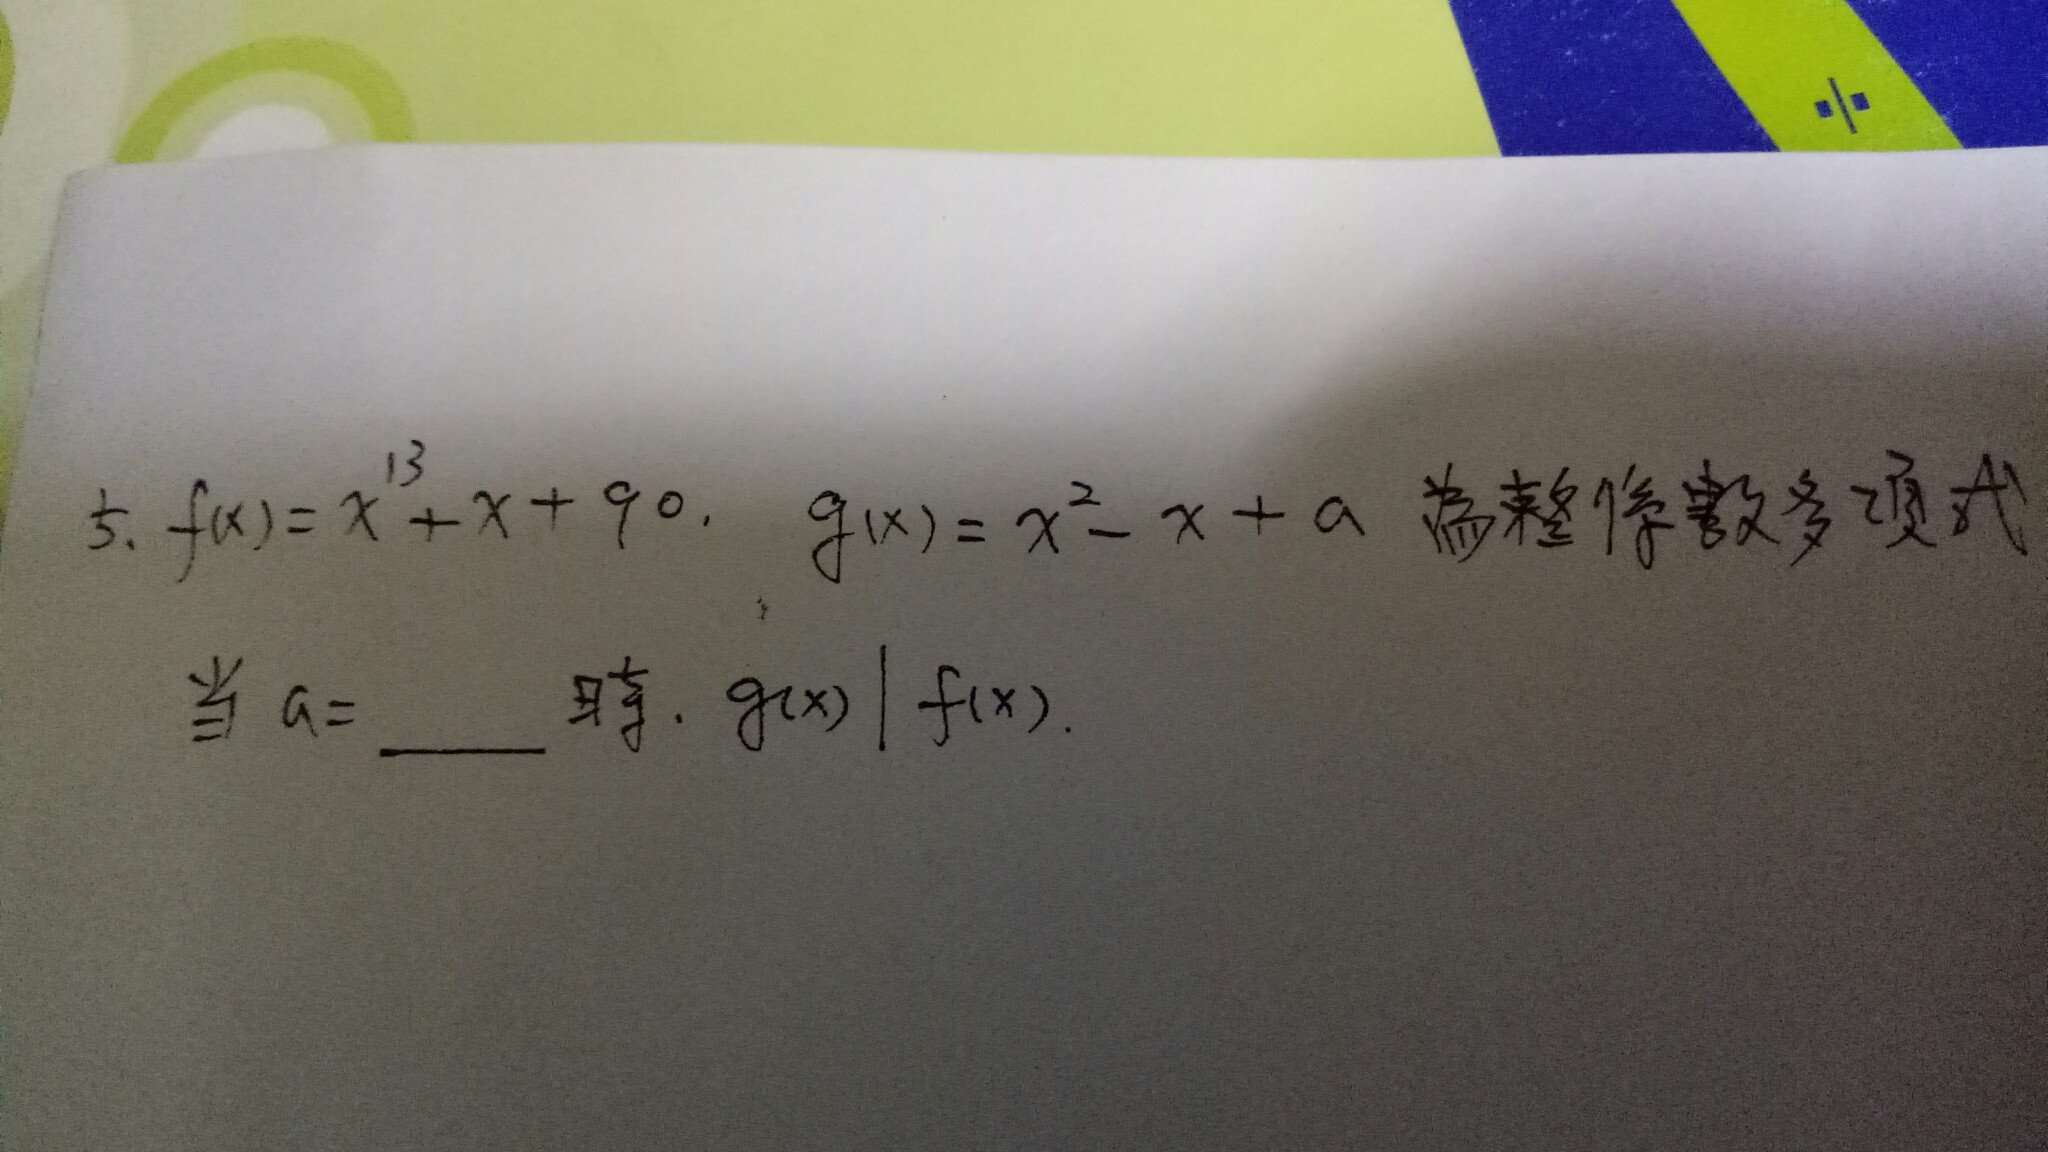 ÷
5. f(x) = x¹³ + x + 90. g(x) = x² - x + a 為整係數多项式
当 a = ____ 時. g(x) | f(x).